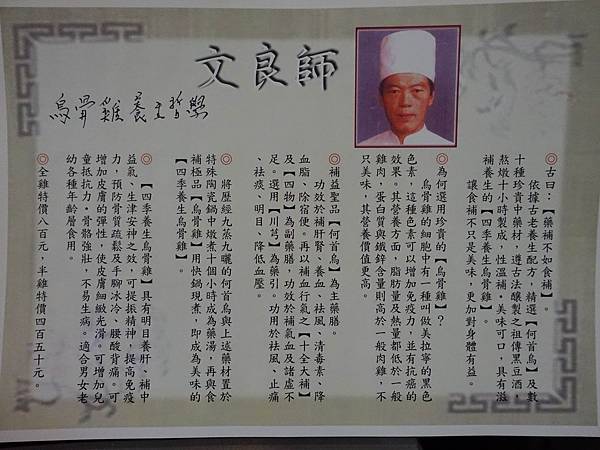 文良師
烏骨雞養生哲學
◎古曰:【藥補不如食補】。
依據古老養生配方,精選【何首烏】及數
十種珍貴中藥材,遵古法釀製之祖傳黑豆酒,
熬燉十小時製成,性溫補。美味可口,具有滋
補養生的【四季養生烏骨雞】。
讓食補不只是美味,更加對身體有益。
◎為何選用珍貴的【烏骨雞】?
烏骨雞的細胞中有一種叫做美拉寧的黑色
色素,這種色素可以增加免疫力,並有抗癌的
效果。其營養方面,脂肪量及熱量都低於一般
雞肉,蛋白質與鐵鋅含量則高於一般肉雞,不
只美味,其營養價值更高。
◎補益聖品【何首烏】為主藥膳。
功效於補肝腎、養血、袪風、清毒素、降
血脂、除宿便。再以補血行氣之【十全大補】
及【四物】為副藥膳,功效於補氣血及諸虛不
足。選用【川芎】為藥引。功用於袪風、止痛
、袪痰、明目、降低血壓。
◎將歷經九蒸九曬的何首烏與上述藥材置於
特殊陶瓷鍋中燉煮十個小時成為藥湯,再與食
補極品【烏骨雞】用快鍋現煮,即成為美味的
【四季養生烏骨雞】。
◎【四季養生烏骨雞】具有明目養肝、補中
益氣、生津安神之效,可提振精神,提高免疫
力,預防骨質疏鬆及手腳冰冷、腰酸背痛。可
增加皮膚的彈性,使皮膚細緻光滑。可增加兒
童抵抗力。骨骼強壯,不易生病。適合男女老
幼各種年齡層食用。
◎全雞特價八百元,半雞特價四百五十元。